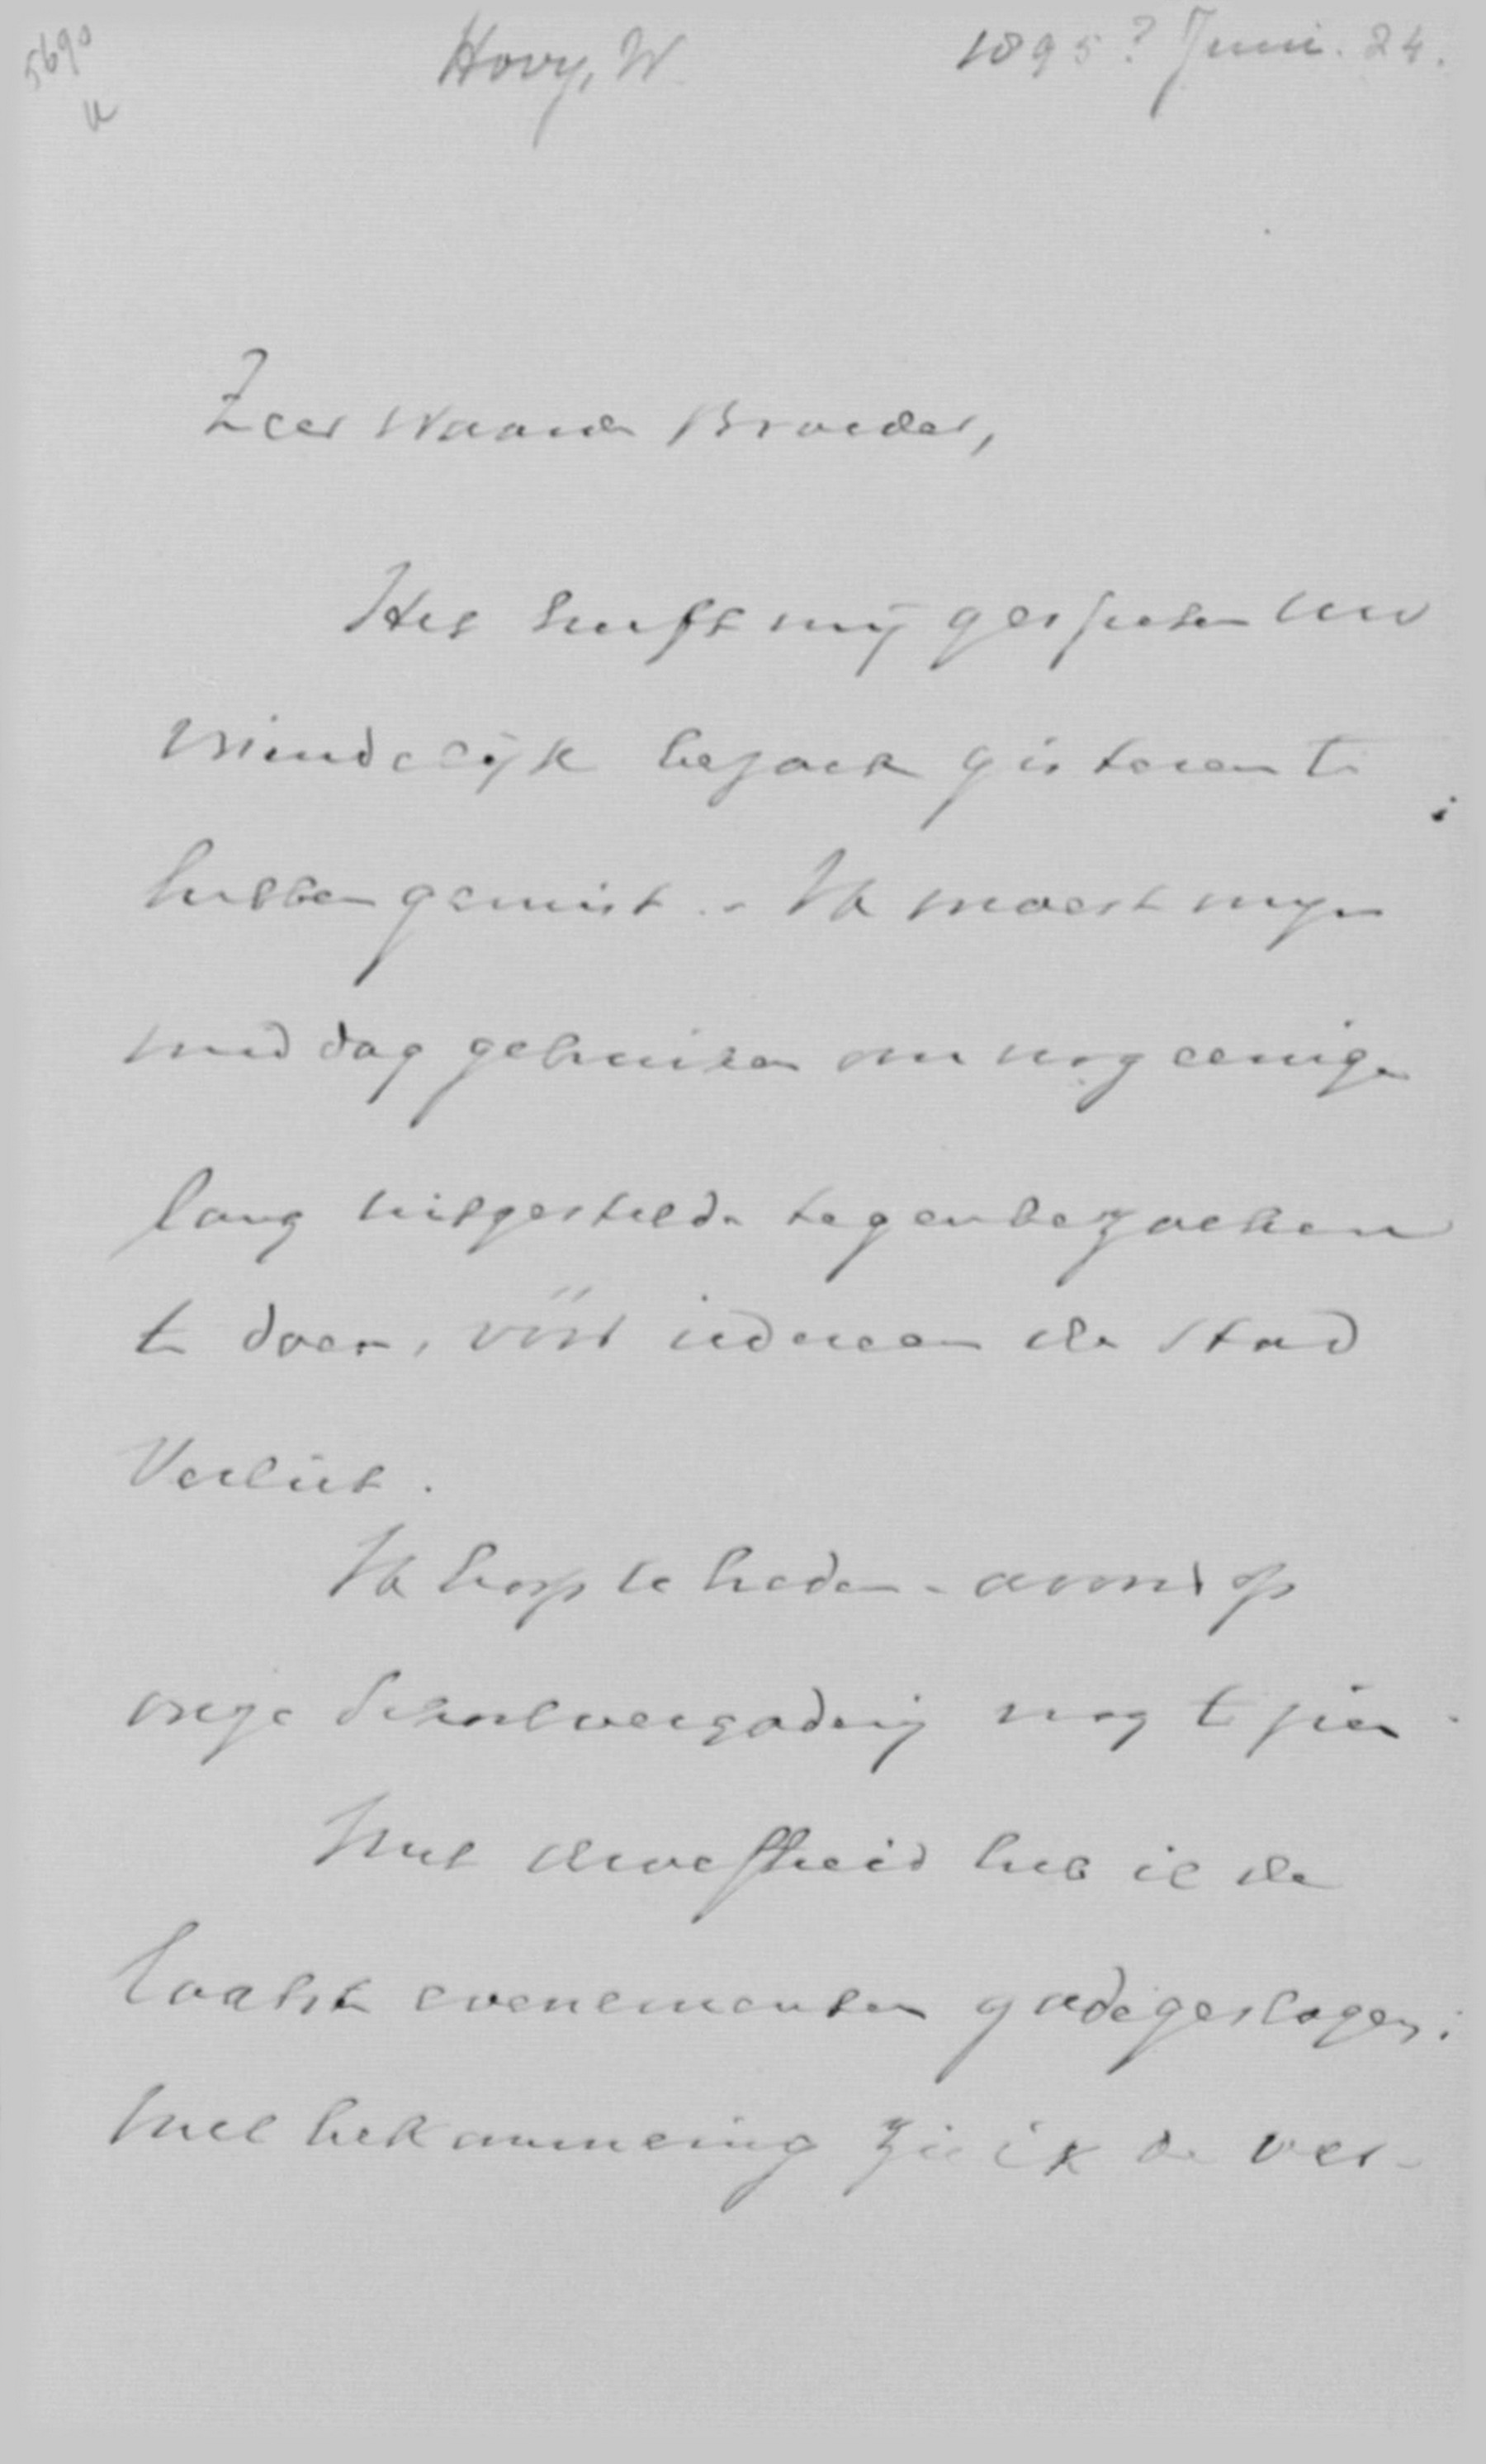 5690
Hovy, W
1895? Juni. 24.
Zeer Waarde Broeder,
Het heeft mij gespeten Uw
vriendelijk bezoek gisteren te
hebben gemist. - Ik moest mijn
middag gebruiken om nog eenige
lang uitgestelde tegenbezoeken
te doen, vóór iedereen de stad
Verliet.
Ik hoop U heden-avond op
onze Schoolvergadering nog te zien.
Met droefheid heb ik de
laatste evenementen gadegeslagen;
met bekommering zie ik de ver-